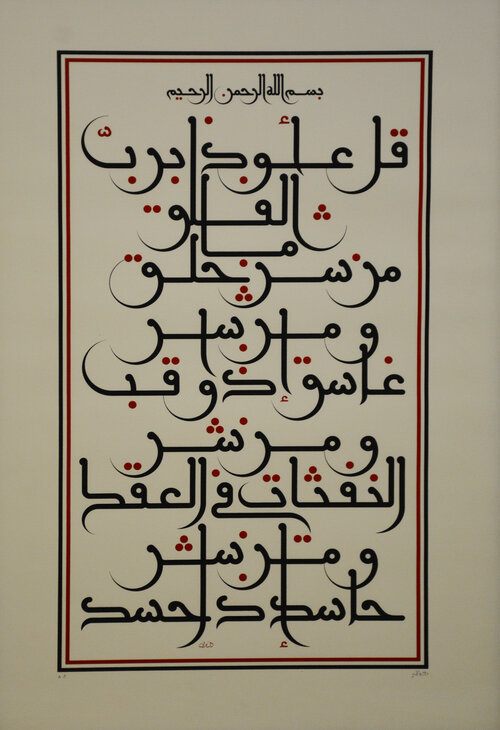 بسم الله الرحمن الرحيم
قل أعوذ برب
الفلق
من شر ما خلق
و من شر
غاسق إذا وقب
و من شر
النفثات في العقد
و من شر
حاسد إذا حسد